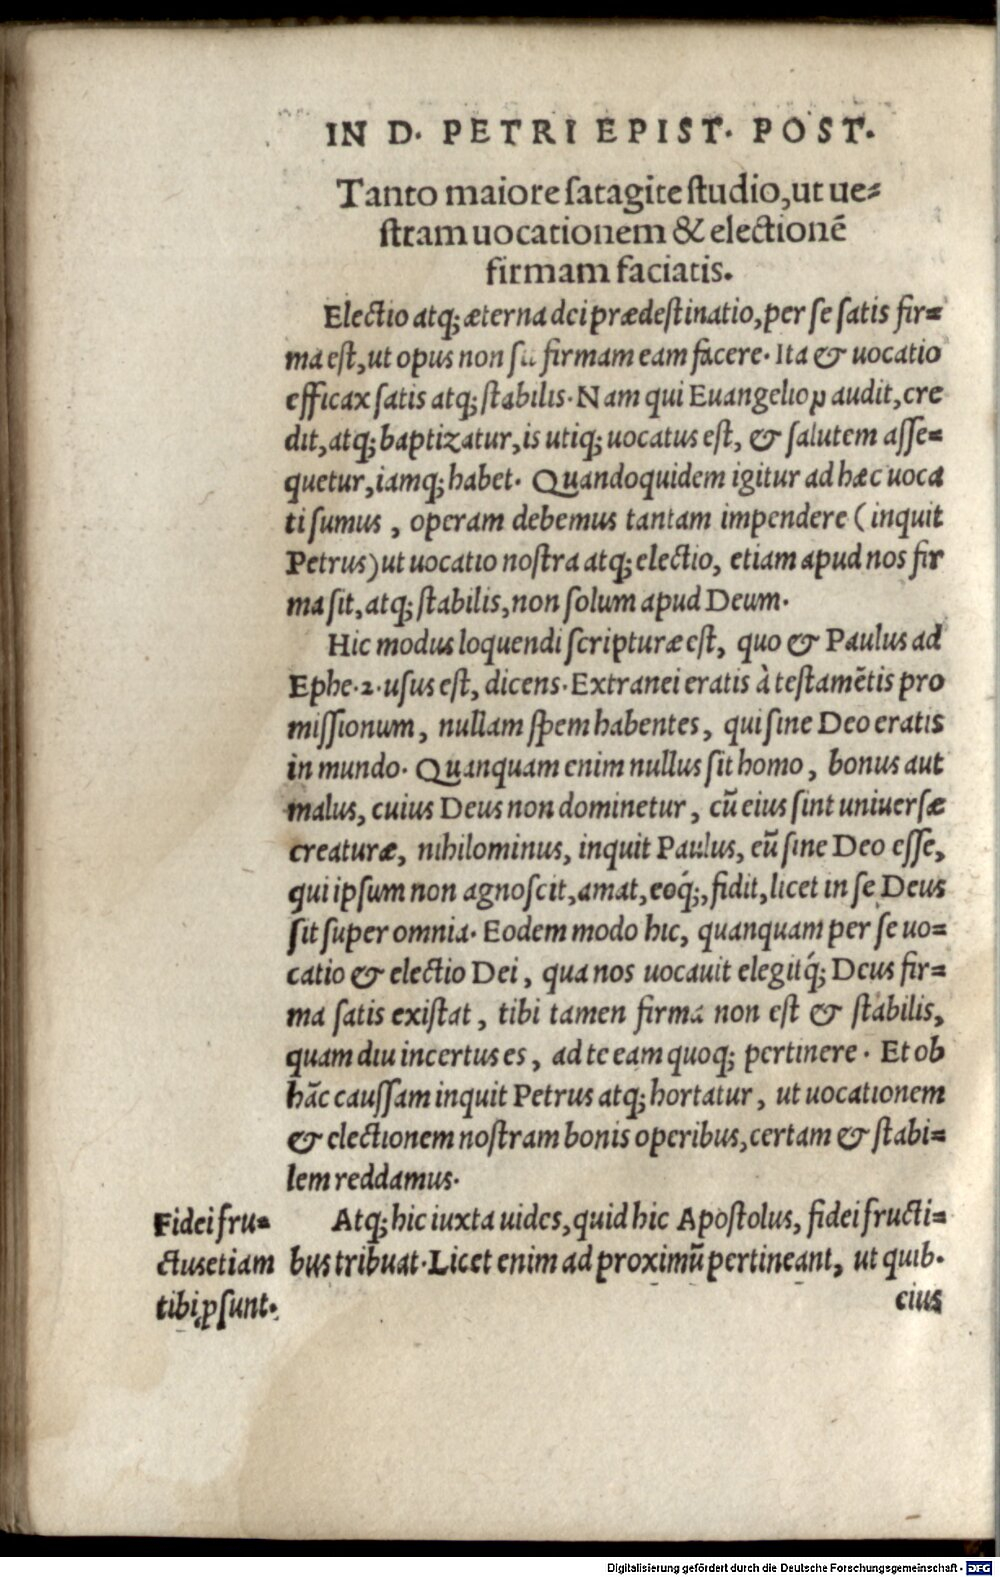 IN D. PETRI EPIST. POST.
Tanto maiore satagite studio, ut ue=
stram uocationem & electionē
firmam faciatis.
Electio atq; æterna dei prædestinatio, per se satis fir=
ma est, ut opus non sit firmam eam facere. Ita & uocatio
efficax satis atq; stabilis. Nam qui Euangelioꝝ audit, cre
dit, atq; baptizatur, is utiq; uocatus est, & salutem asse=
quetur, iamq; habet. Quandoquidem igitur ad hæc uoca
ti sumus, operam debemus tantam impendere (inquit
Petrus) ut uocatio nostra atq; electio, etiam apud nos fir
ma sit, atq; stabilis, non solum apud Deum.
Hic modus loquendi scripturæ est, quo & Paulus ad
Ephe. 2. usus est, dicens. Extranei eratis à testamētis pro
missionum, nullam spem habentes, qui sine Deo eratis
in mundo. Quanquam enim nullus sit homo, bonus aut
malus, cuius Deus non dominetur, cū eius sint uniuersæ
creaturæ, nihilominus, inquit Paulus, eū sine Deo esse,
qui ipsum non agnoscit, amat, eoq́;, fidit, licet in se Deus
sit super omnia. Eodem modo hic, quanquam per se uo=
catio & electio Dei, qua nos uocauit elegitq́; Deus fir=
ma satis existat, tibi tamen firma non est & stabilis,
quam diu incertus es, ad te eam quoq; pertinere. Et ob
hāc caussam inquit Petrus atq; hortatur, ut uocationem
& electionem nostram bonis operibus, certam & stabi=
lem reddamus.
Fidei fru=
ctus etiam
tibi ꝓsunt.
Atq; hic iuxta uides, quid hic Apostolus, fidei fructi=
bus tribuat. Licet enim ad proximū pertineant, ut quib.
eius
Digitalisierung gefördert durch die Deutsche Forschungsgemeinschaft - DFG